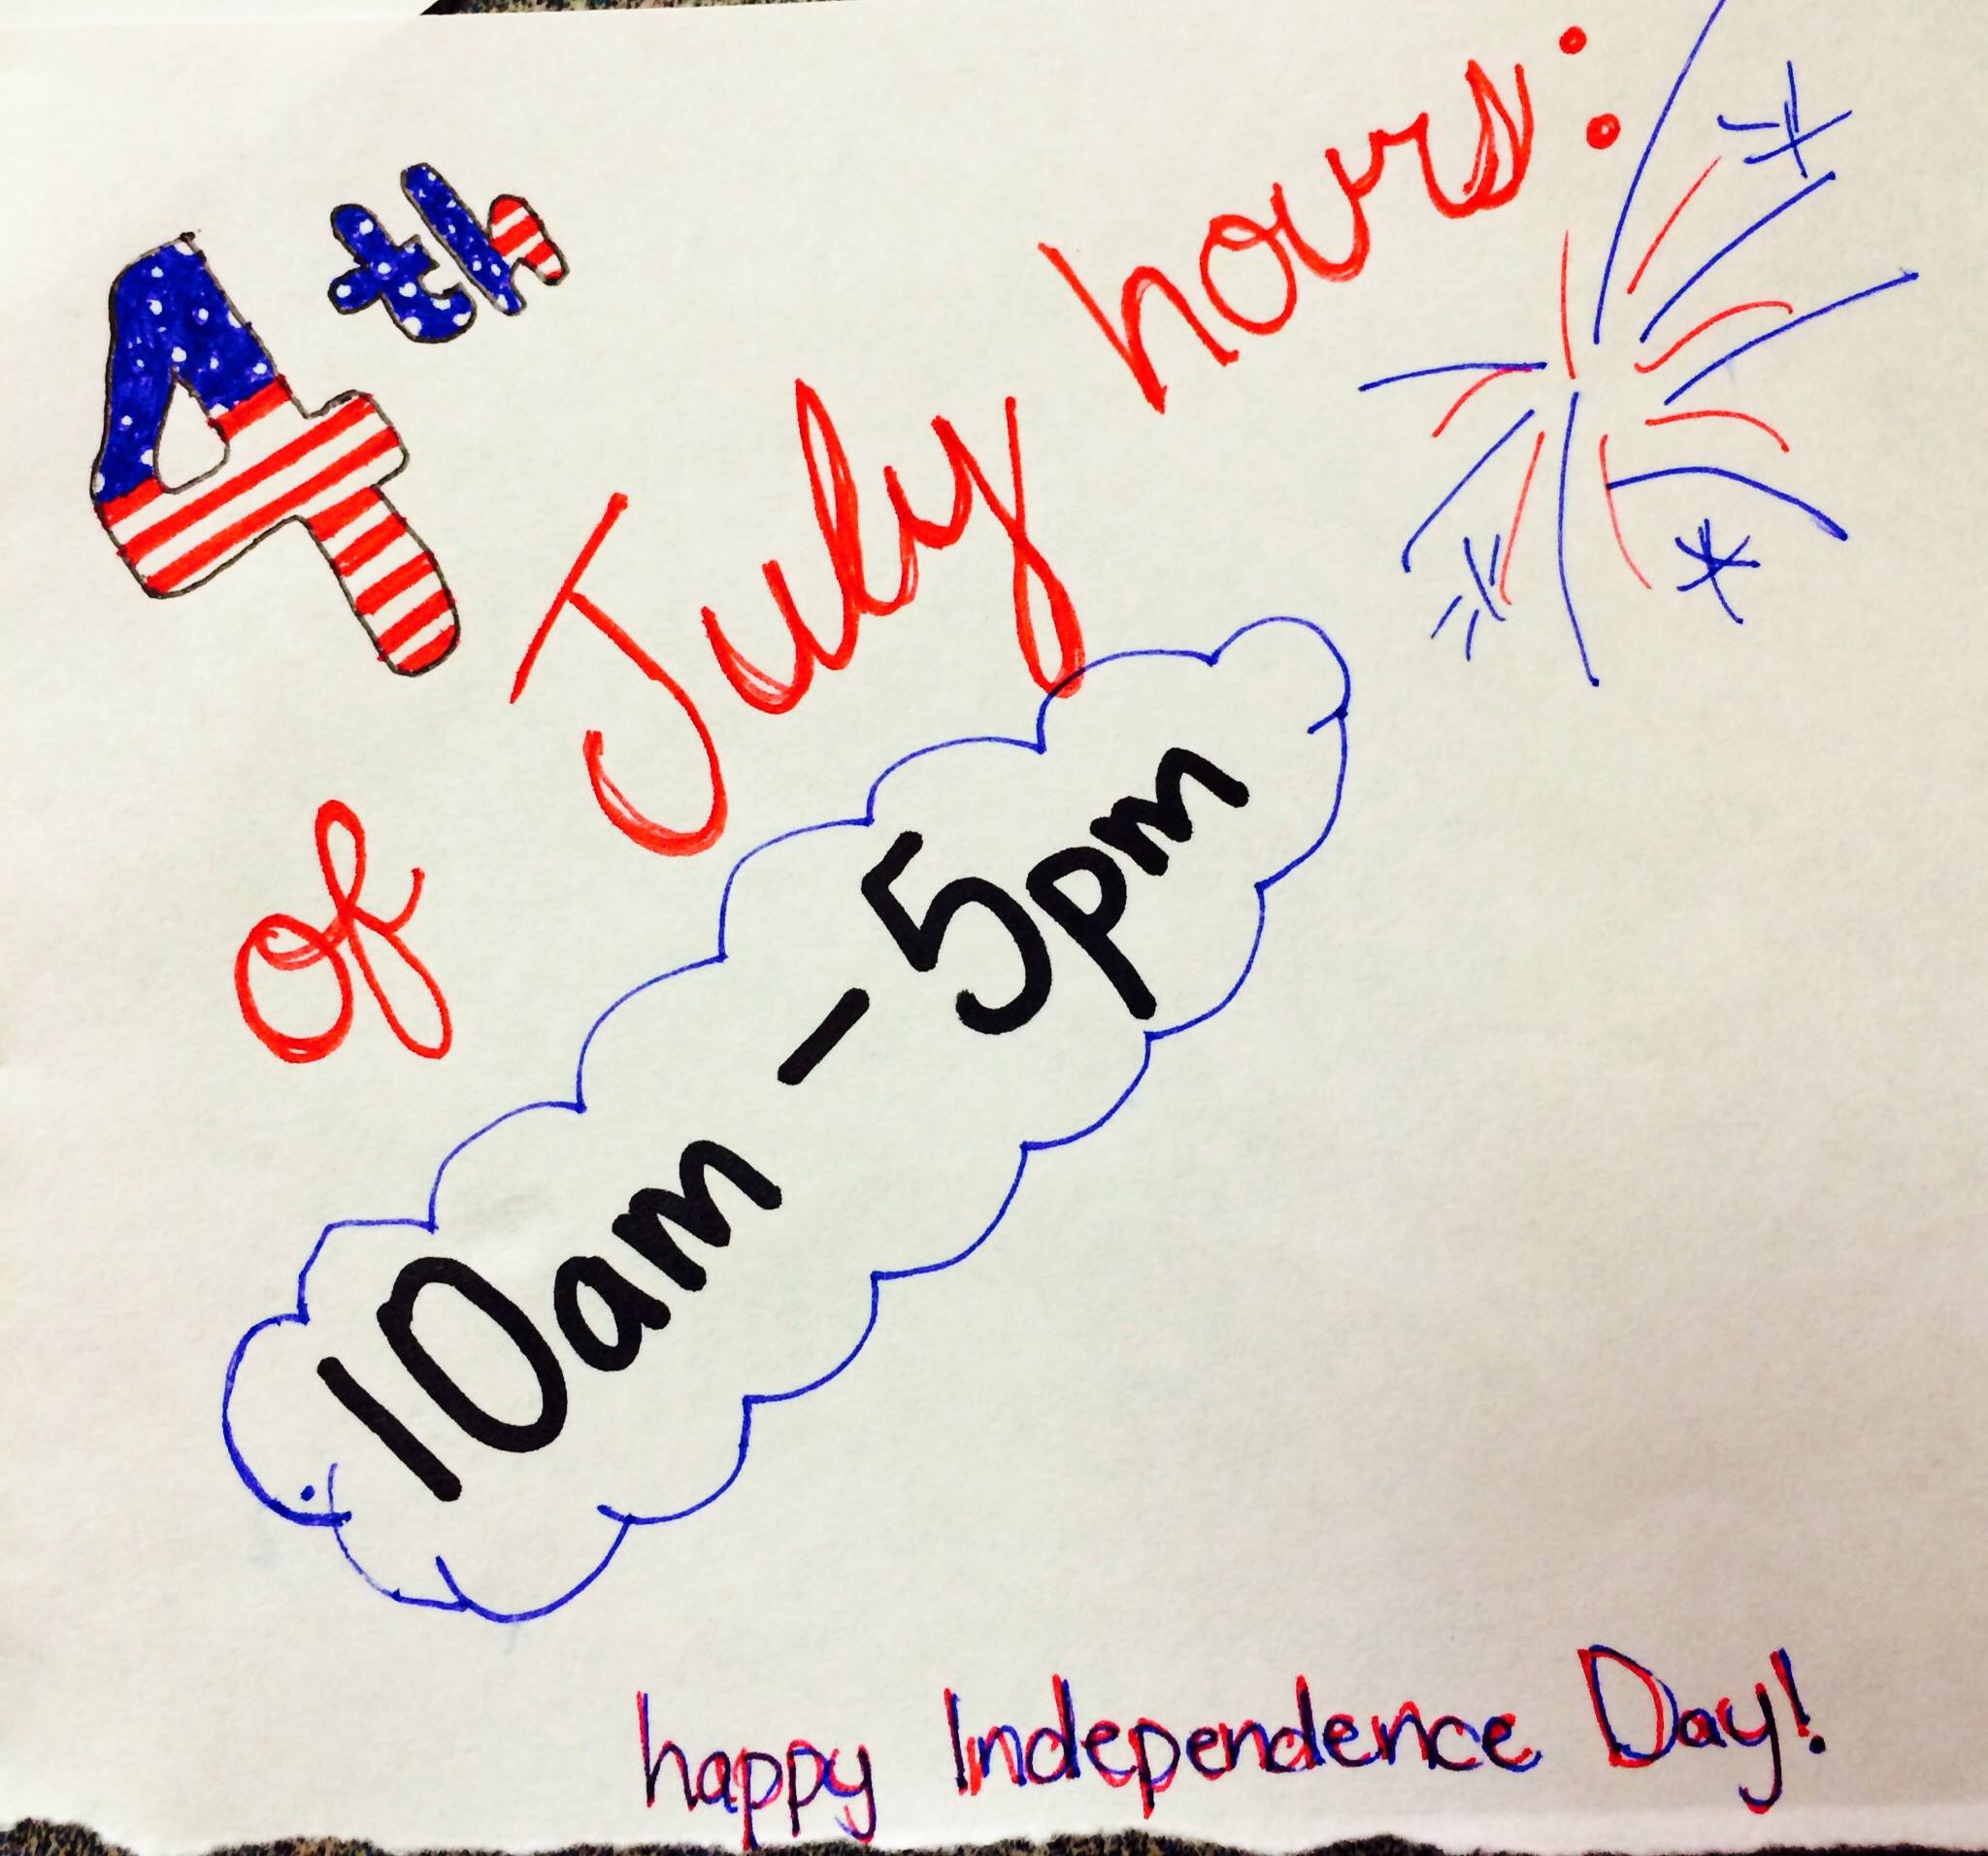 4th
of July hours:
10am - 5pm
happy Independence Day!